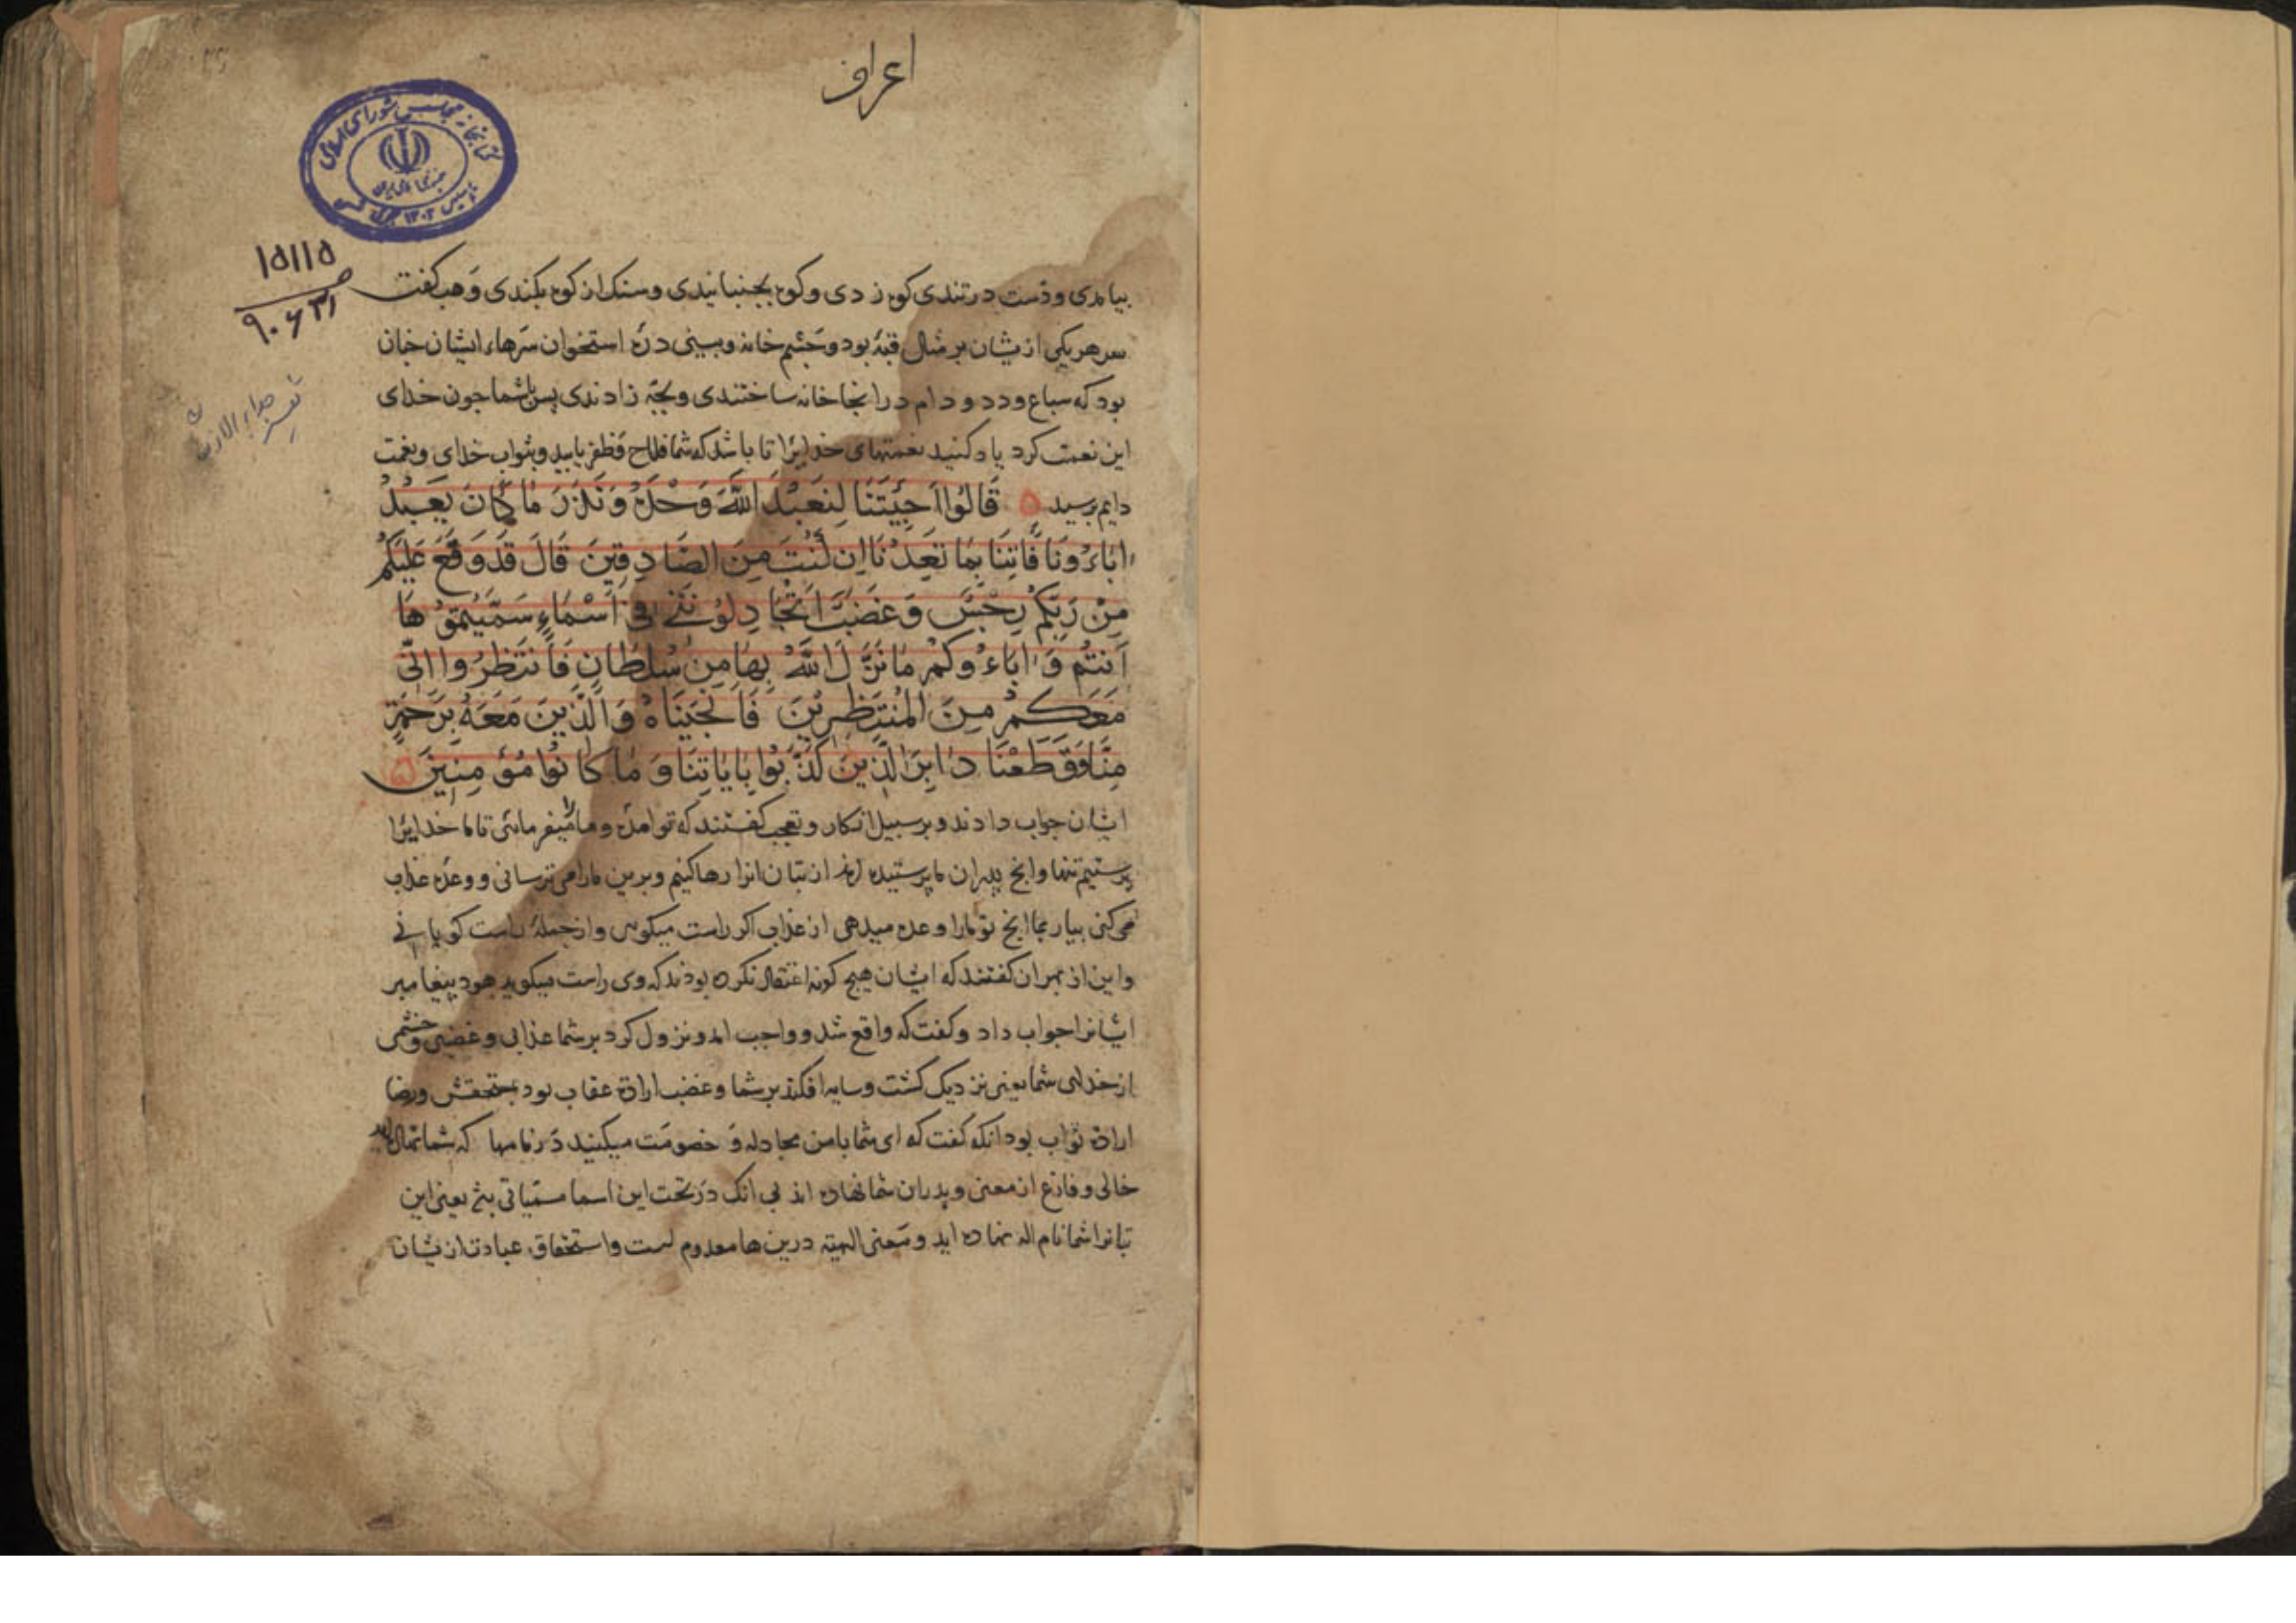 اعراف
کتابخانه مجلس شورای اسلامی
۱۵۱۱۵
۹۰۶۳۱
بیامدی و دست در تندی کوه زدی و کوه بجنبانیدی و سنک از کوه بکندی وهب کفت
سر هر یکی ازیشان بر مثال قبهٔ بود و چشم خانه و بینی دره استخوان سرهاء ایشان جنان
بود که سباع و دد و دام در انجا خانه ساختندی و بجه زادندی پس باشما جون خدای
این نعمت کرد یاد کنید نعمتهای خدایرا تا باشد که شما فلاح و ظفر یابید و بثواب خدای و نعمت
دایم برسید قَالُوا اَجِئتَنَا لِنَعبُدَ اللَّهَ وَحْدَهُ وَنَذَرَ مَا كَانَ يَعبُدُ
اٰبَاءُونَا فَاتِنَا بِمَا تَعِدُنَا اِن كُنتَ مِنَ الصَّادِقِينَ قَالَ قَدوَقَعَ عَلَيكُم
مِنْ رَبِّكُم رِجْسٌ وَغَضَبٌ اَتُجَادِلُونَنِي فِي اَسْمَاءٍ سَمَّيتُمُوهَا
اَنتُم وَاٰبَاءُوكُمْ مَا نَزَّلَ اللَّهُ بِهَا مِن سُلطَانٍ فَانتَظِرُوا اِنّي
مَعَكُمْ مِنَ المُنتَظِرِينَ فَاَنجَينَاهُ وَالَّذِينَ مَعَهُ بِرَحمَةٍ
مِنَّا وَقَطَعْنَا دَابِرَ الَّذِينَ كَذَّبُوا بِاٰيَاتِنَا وَمَا كَانُوا مُؤمِنِينَ
ایشان جواب دادند و بر سبیل انکار و تعجب کفتند که تو امدهٔ و ما را میفرمائی تا ما خدایرا
پرستیم تنها و انج پدران ما پرستیده اند از بتان انرا رها کنیم و برین ما را می ترسانی و وعده عذاب
می کنی بیار بما انج تو ما را وعده میدهی از عذاب اکر راست میکوی و از جملهٔ راست کویانی
و این از بهر ان کفتند که ایشان هیج کونه اعتقاد نکرده بودند که وی راست میکوید هود پیغامبر
ایشانرا جواب داد و کفت که واقع شد و واجب امد و نزول کرد بر شما عذابی و غضبی و خشمی
از خدای شما یعنی نزدیک کشت و سایه افکند بر شما و غضب ارادة عقاب بود بمستحقش و رضا
ارادة ثواب بود انکه کفت که ای شما با من مجادله و خصومت میکنید در نامها که شما
خالی و فارغ از معنی و پدران شما نهاده اند بی انک در تحت این اسما مسمیاتی یعنی این
بتانرا شما نام اله نهاده اید و معنی الهیته درین ها معدوم است و استحقاق عبادت ازیشان